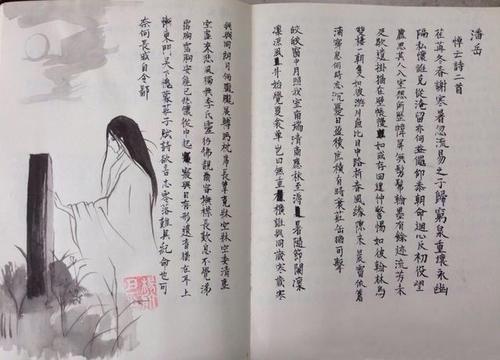 潘岳
悼亡詩二首
荏苒冬春謝寒暑忽流易之子歸窮泉重壤永幽
隔私懷誰克從淹留亦何益僶俛恭朝命迴心反初役望
廬思其人入室想所歷幃屏無髣髴翰墨有餘迹流芳未
及歇遺掛猶在壁悵怳如或存回遑忡驚惕如彼翰林鳥
雙棲一朝隻如彼游川魚比目中路析春風緣隙來晨霤依簷
滴寢息何時忘沉憂日盈積庶幾有時衰莊缶猶可擊
皎皎窗中月照我室南端清商應秋至溽暑隨節闌凜
凜涼風升始覺夏衾單豈曰無重纊誰與同歲寒歲寒
無與同朗月何朧朧展轉眄枕席長簟竟牀空牀空委清塵
室虛來悲風獨無李氏靈仿佛覩爾容撫襟長歎息不覺涕
霑胸霑胸安能已悲懷從中起寢興目存形遺音猶在耳上
慚東門吳下愧蒙莊子賦詩欲言志零落難具紀命也可
奈何長戚自令鄙